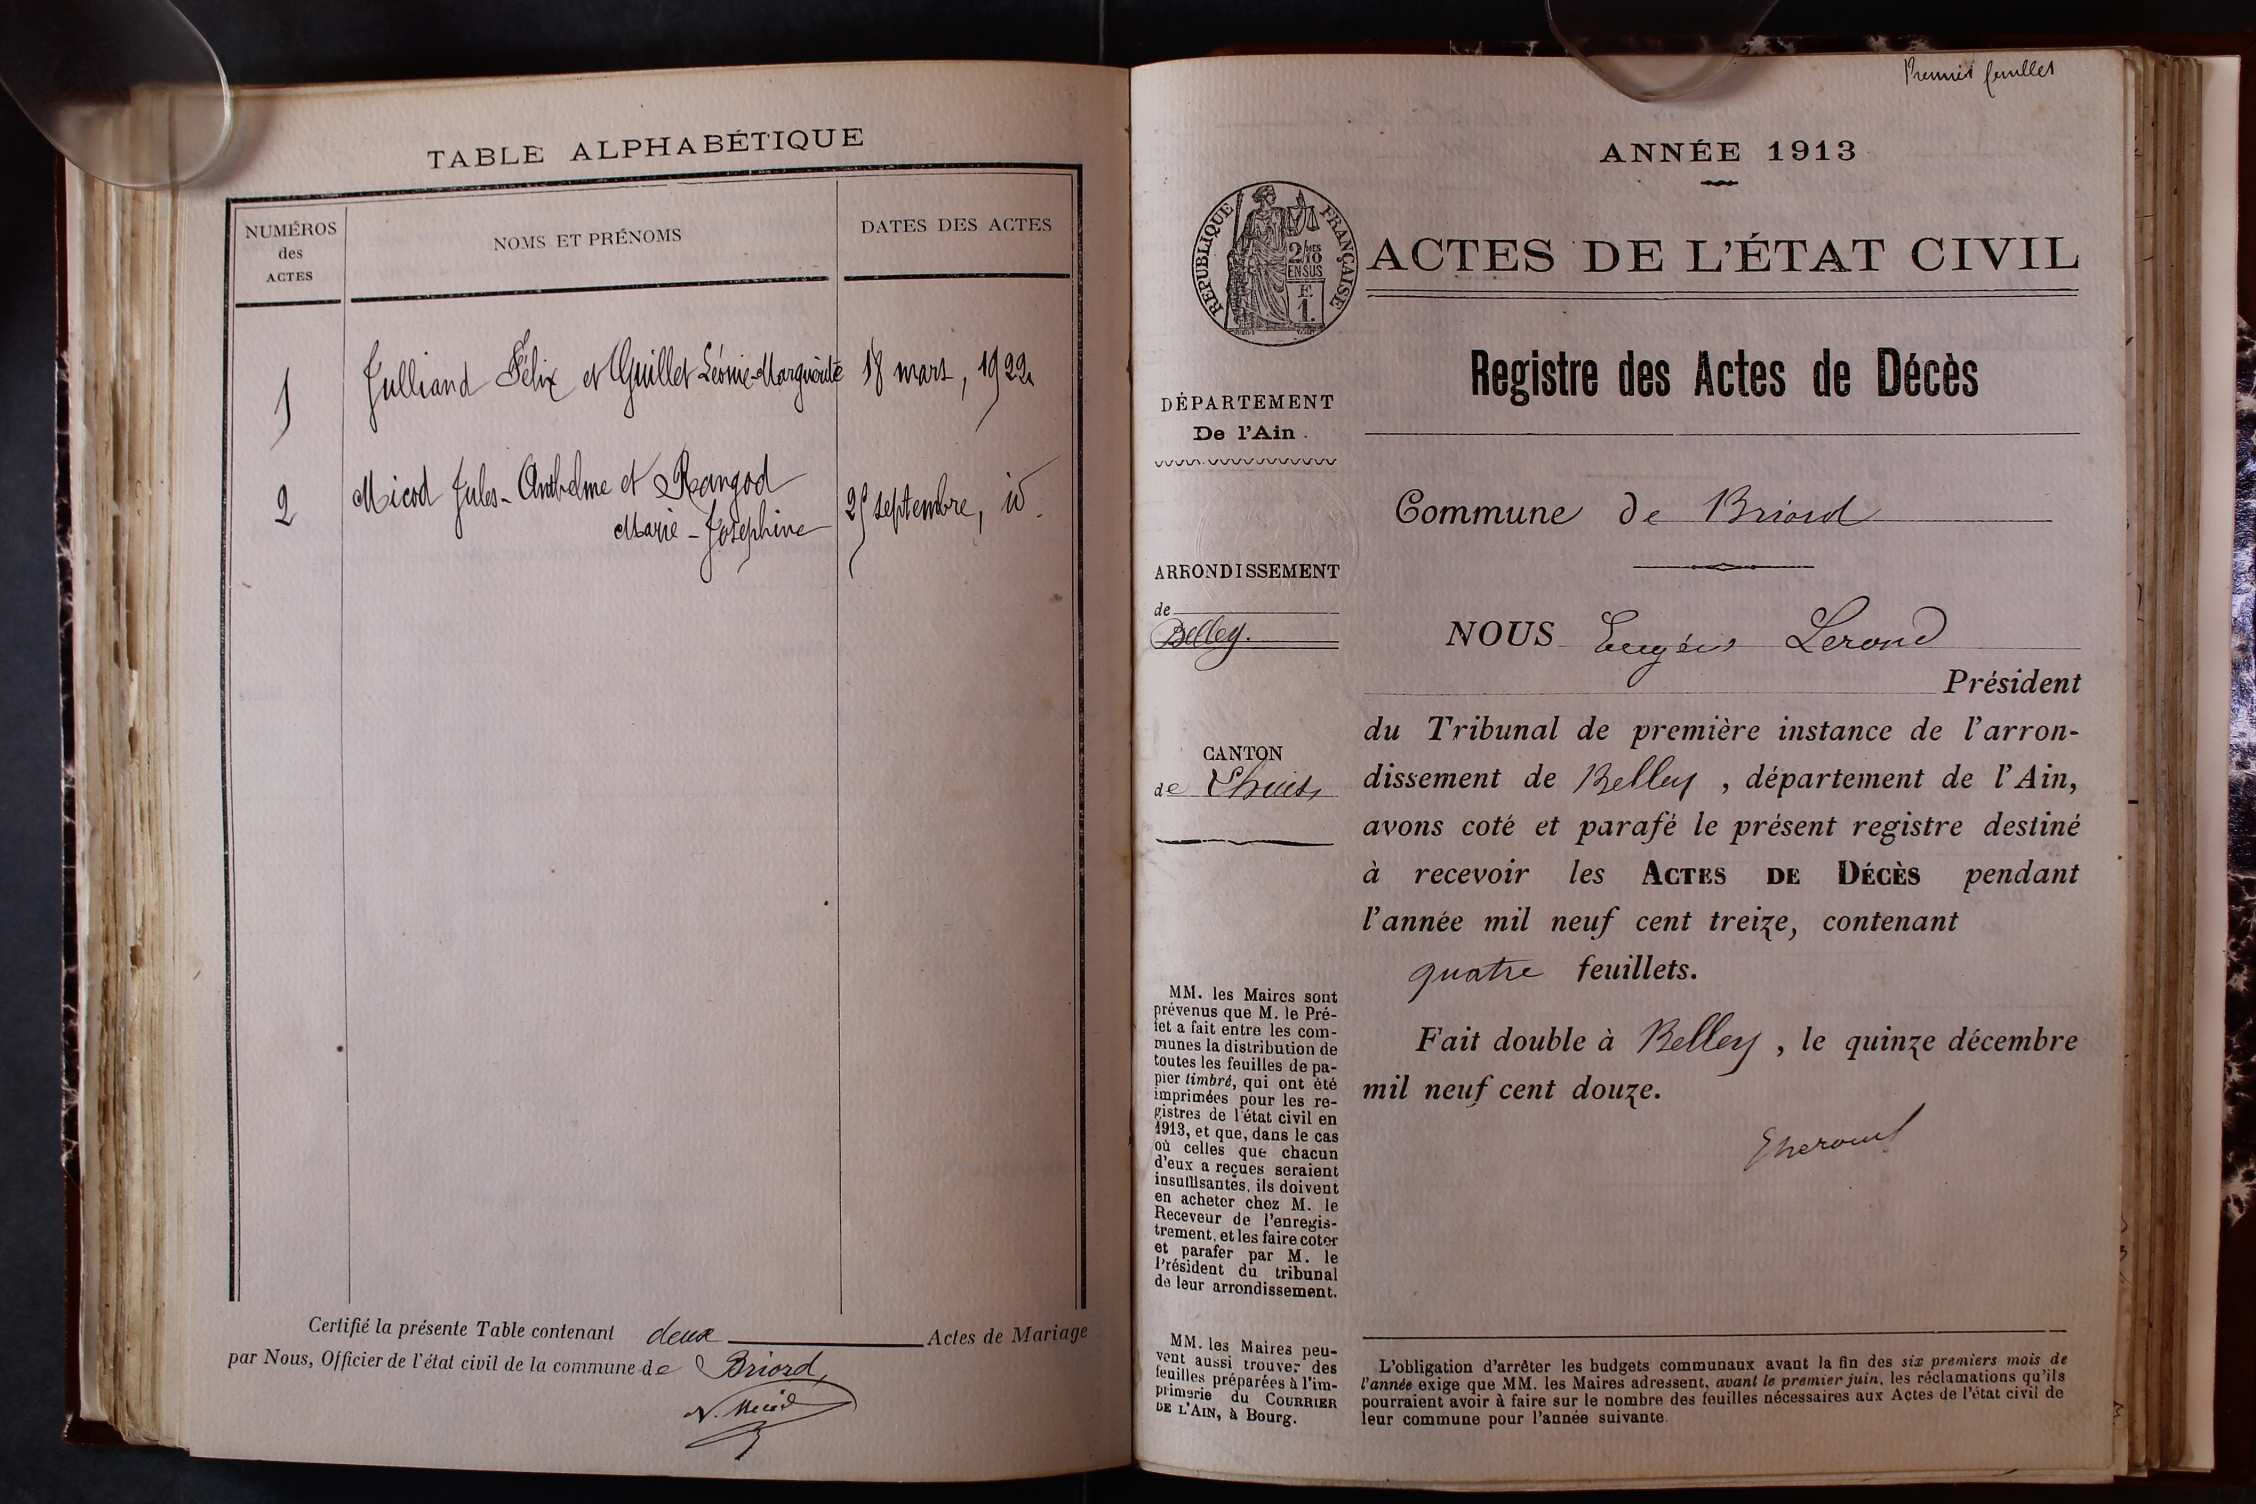 TABLE ALPHABÉTIQUE
NUMÉROS
des
ACTES
NOMS ET PRÉNOMS
DATES DES ACTES
1
Julliand Félix et Guillet Léonie-Marguerite
18 mars, 1922
2
Micod Jules-Anthelme et Rangod
Marie-Joséphine
25 septembre, id.
Certifié la présente Table contenant deux Actes de Mariage
par Nous, Officier de l'état civil de la commune de Briord,
Premier feuillet
ANNÉE 1913
RÉPUBLIQUE FRANÇAISE
2/10MES
EN SUS
F.
1.
ACTES DE L'ÉTAT CIVIL
Registre des Actes de Décès
DÉPARTEMENT
De l'Ain.
ARRONDISSEMENT
de
Belley.
CANTON
de Lhuis,
MM. les Maires sont
prévenus que M. le Pré-
fet a fait entre les com-
munes la distribution de
toutes les feuilles de pa-
pier timbré, qui ont été
imprimées pour les re-
gistres de l'état civil en
1913, et que, dans le cas
où celles que chacun
d'eux a reçues seraient
insuffisantes, ils doivent
en acheter chez M. le
Receveur de l'enregis-
trement, et les faire coter
et parafer par M. le
Président du tribunal
de leur arrondissement.
MM. les Maires peu-
vent aussi trouver des
feuilles préparées à l'im-
primerie du COURRIER
DE L'AIN, à Bourg.
Commune de Briord
NOUS Eugène Lerond
Président
du Tribunal de première instance de l'arron-
dissement de Belley, département de l'Ain,
avons coté et parafé le présent registre destiné
à recevoir les ACTES DE DÉCÈS pendant
l'année mil neuf cent treize, contenant
quatre feuillets.
Fait double à Belley, le quinze décembre
mil neuf cent douze.
L'obligation d'arrêter les budgets communaux avant la fin des six premiers mois de
l'année exige que MM. les Maires adressent, avant le premier juin, les réclamations qu'ils
pourraient avoir à faire sur le nombre des feuilles nécessaires aux Actes de l'état civil de
leur commune pour l'année suivante.